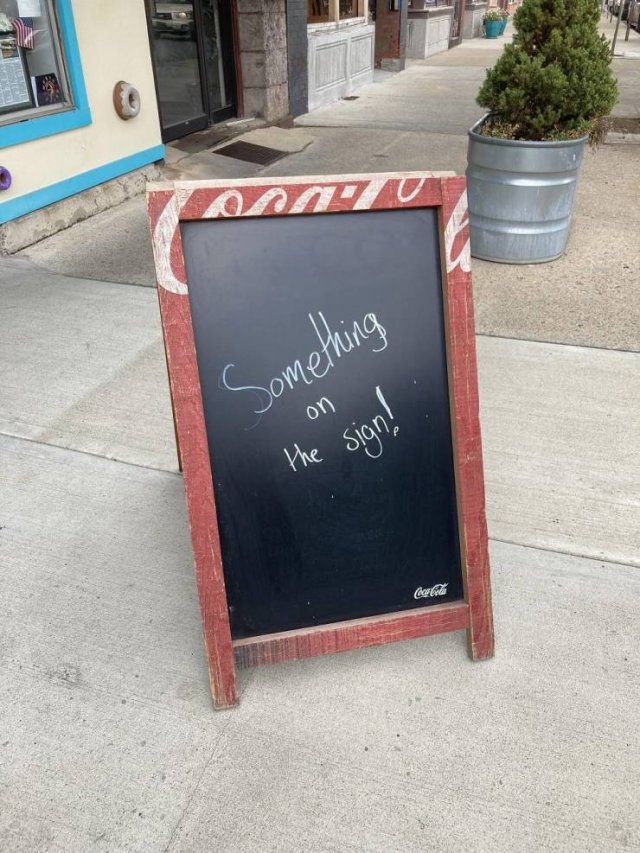 Coca-Co
Something
on
the sign!
Coca-Cola